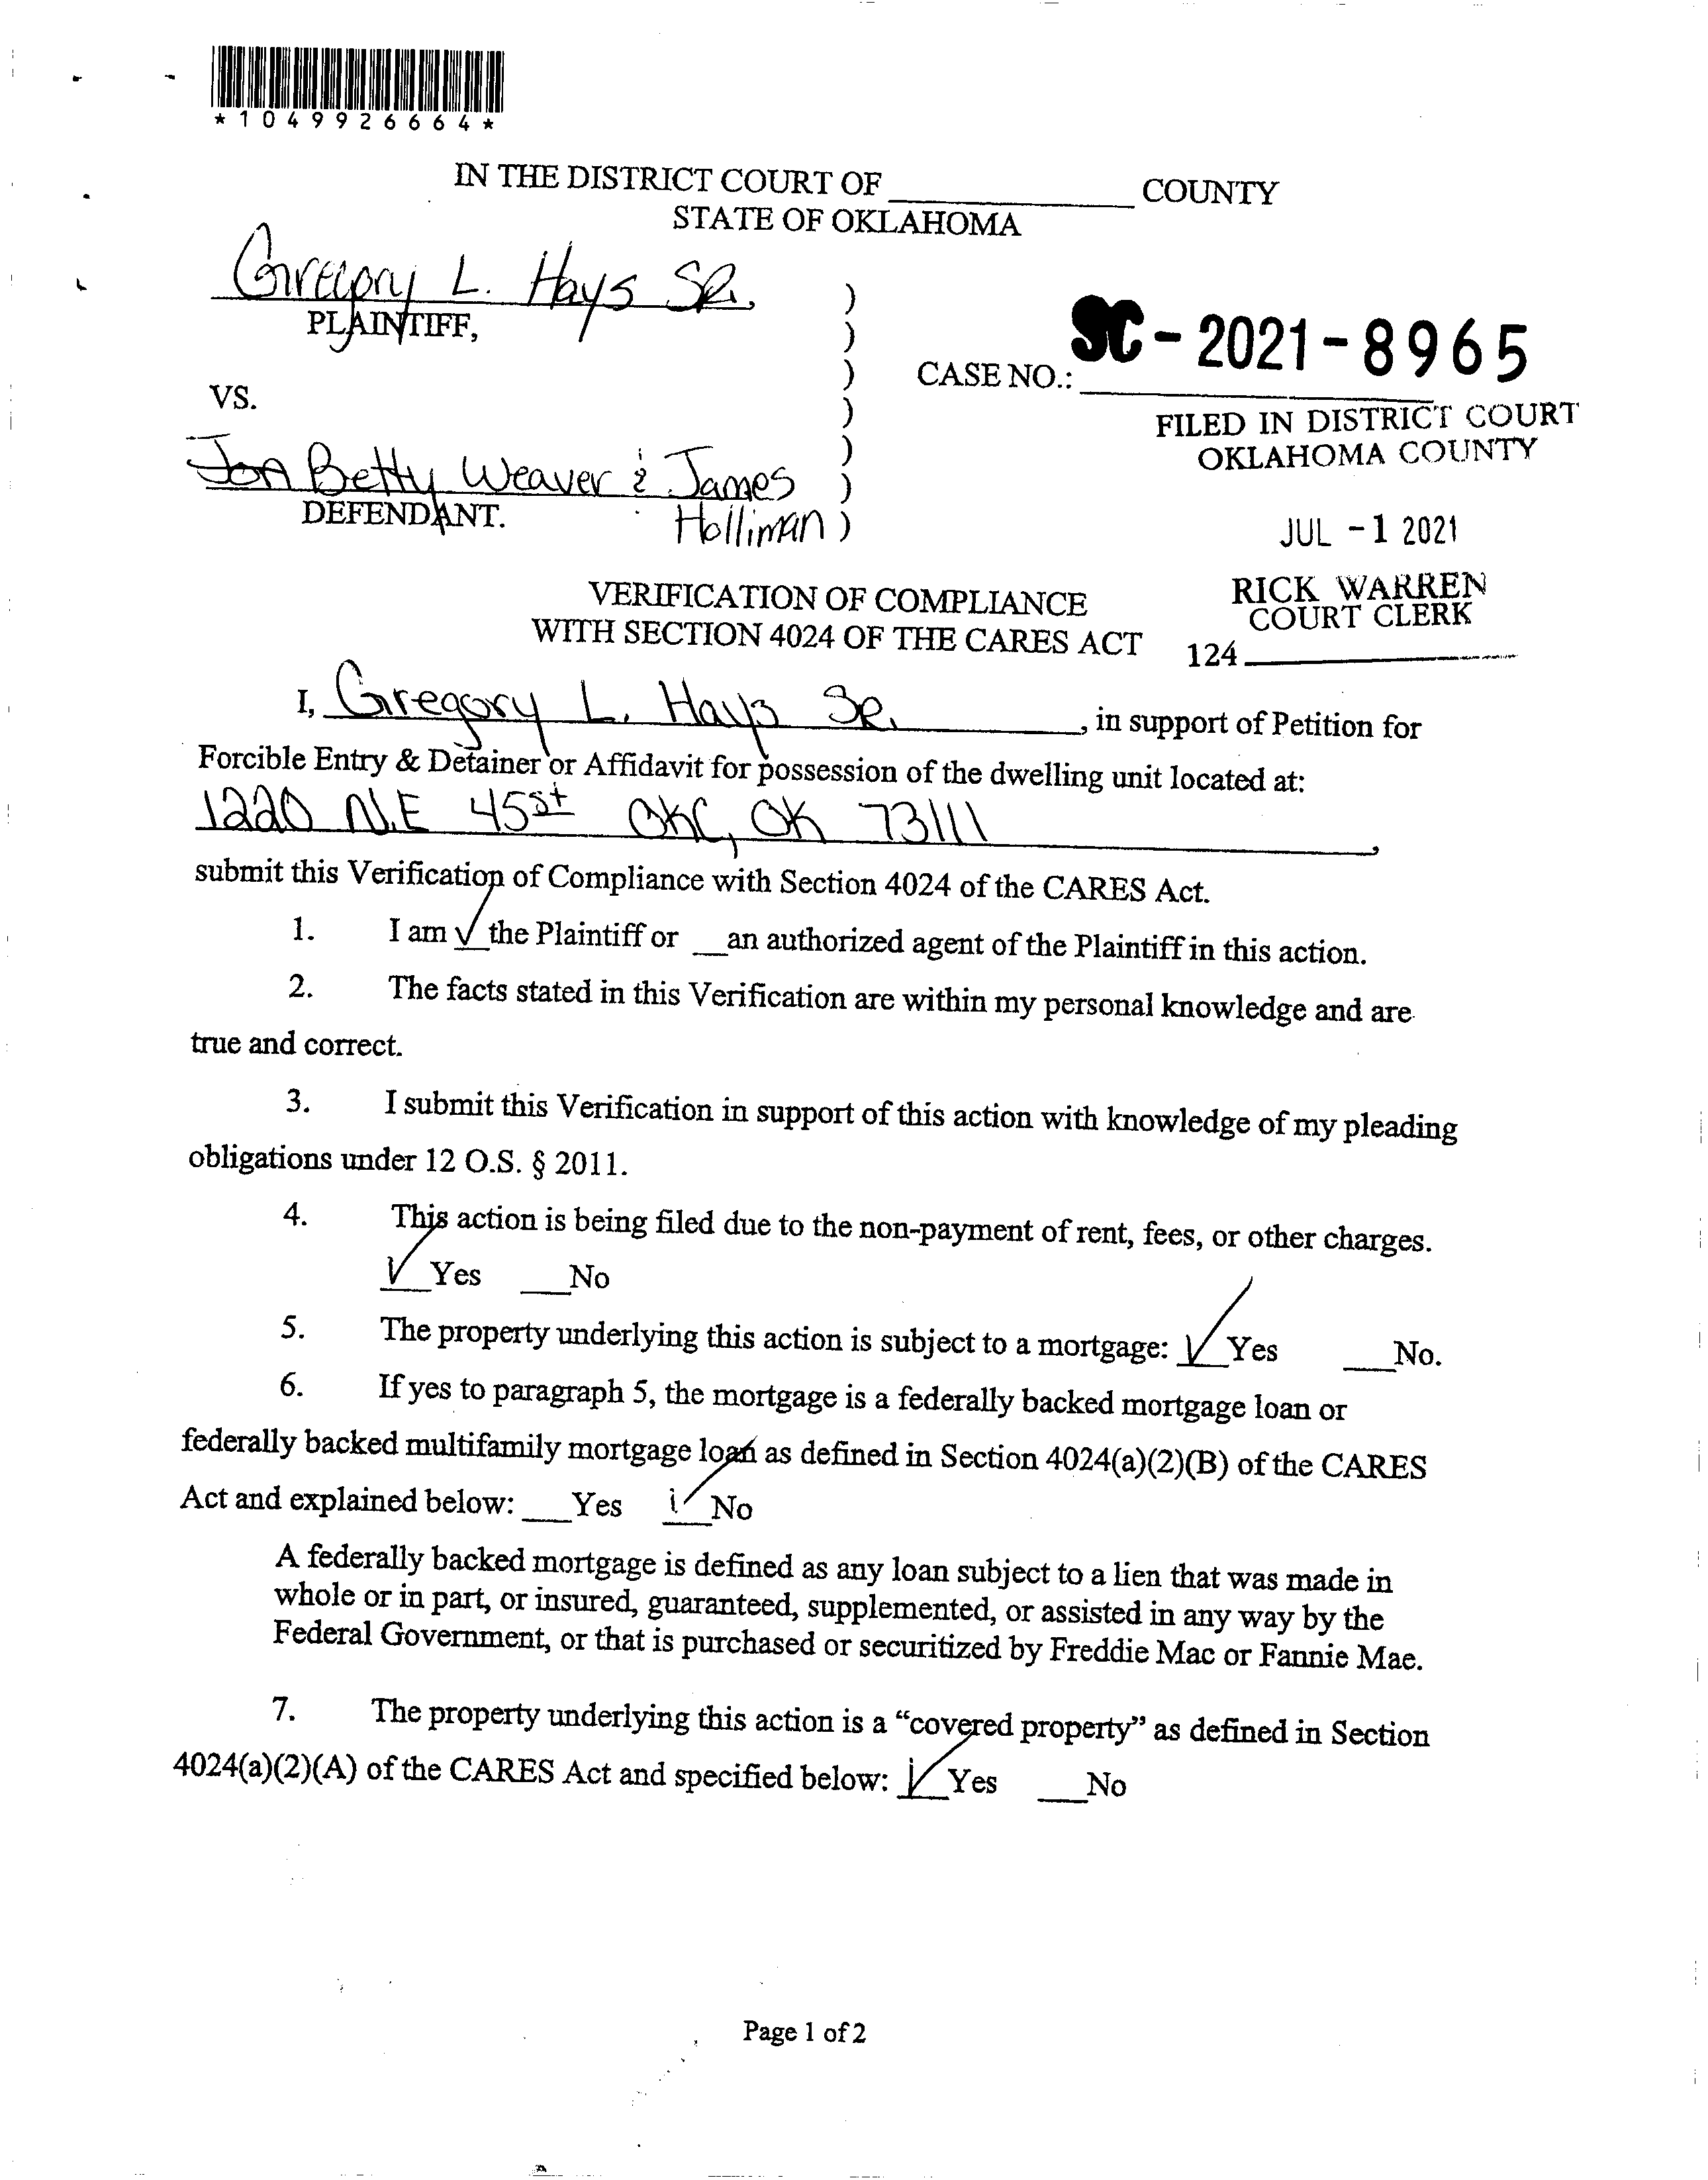 *1049926664*
IN THE DISTRICT COURT OF ____________ COUNTY
STATE OF OKLAHOMA
Gregory L. Hays SR.
PLAINTIFF,
)
)
)
)
)
)
)
VS.
CASE NO.: SC-2021-8965
FILED IN DISTRICT COURT
OKLAHOMA COUNTY
Jon Betty Weaver & James
Holliman
DEFENDANT.
JUL -1 2021
RICK WARREN
COURT CLERK
124
VERIFICATION OF COMPLIANCE
WITH SECTION 4024 OF THE CARES ACT
I, Gregory L. Hays SR. , in support of Petition for
Forcible Entry & Detainer or Affidavit for possession of the dwelling unit located at:
1220 N.E 45st OKC, OK 73111 ,
submit this Verification of Compliance with Section 4024 of the CARES Act.
1. I am ✓ the Plaintiff or __an authorized agent of the Plaintiff in this action.
2. The facts stated in this Verification are within my personal knowledge and are
true and correct.
3. I submit this Verification in support of this action with knowledge of my pleading
obligations under 12 O.S. § 2011.
4. This action is being filed due to the non-payment of rent, fees, or other charges.
✓ Yes ___No
5. The property underlying this action is subject to a mortgage: ✓ Yes ___No.
6. If yes to paragraph 5, the mortgage is a federally backed mortgage loan or
federally backed multifamily mortgage loan as defined in Section 4024(a)(2)(B) of the CARES
Act and explained below: ___Yes ✓ No
A federally backed mortgage is defined as any loan subject to a lien that was made in
whole or in part, or insured, guaranteed, supplemented, or assisted in any way by the
Federal Government, or that is purchased or securitized by Freddie Mac or Fannie Mae.
7. The property underlying this action is a “covered property” as defined in Section
4024(a)(2)(A) of the CARES Act and specified below: ✓ Yes ___No
Page 1 of 2